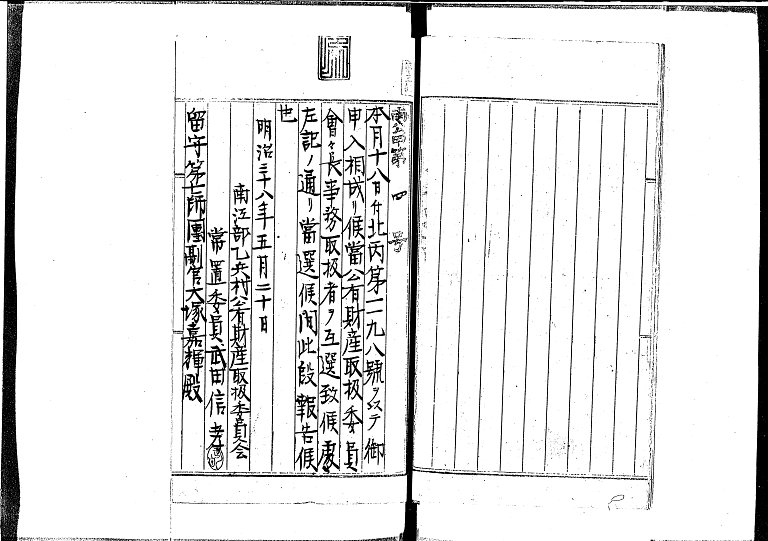 南公甲第四号
本月十八日付北丙第一一九八號ヲ以テ御
申入相成リ候當公有財産取扱委員
會々長事務取扱者ヲ互選致候處
左記ノ通リ當選候間此段報告候
也
明治三十八年五月二十日
南江部乙兵村公有財産取扱委員会
常置委員武田信
留守第七師團副官大塚嘉種殿